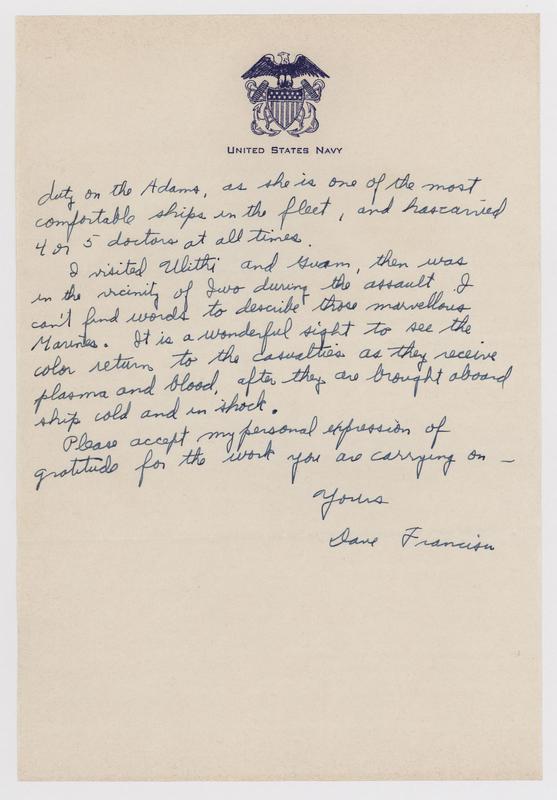 UNITED STATES NAVY
duty on the Adams, as she is one of the most
comfortable ships in the fleet, and has carried
4 or 5 doctors at all times.
I visited Ulithi and Guam, then was
in the vicinity of Iwo during the assault. I
can't find words to describe those marvellous
Marines. It is a wonderful sight to see the
color return to the casualties as they receive
plasma and blood, after they are brought aboard
ship cold and in shock.
Please accept my personal expression of
gratitude for the work you are carrying on —
Yours
Dave